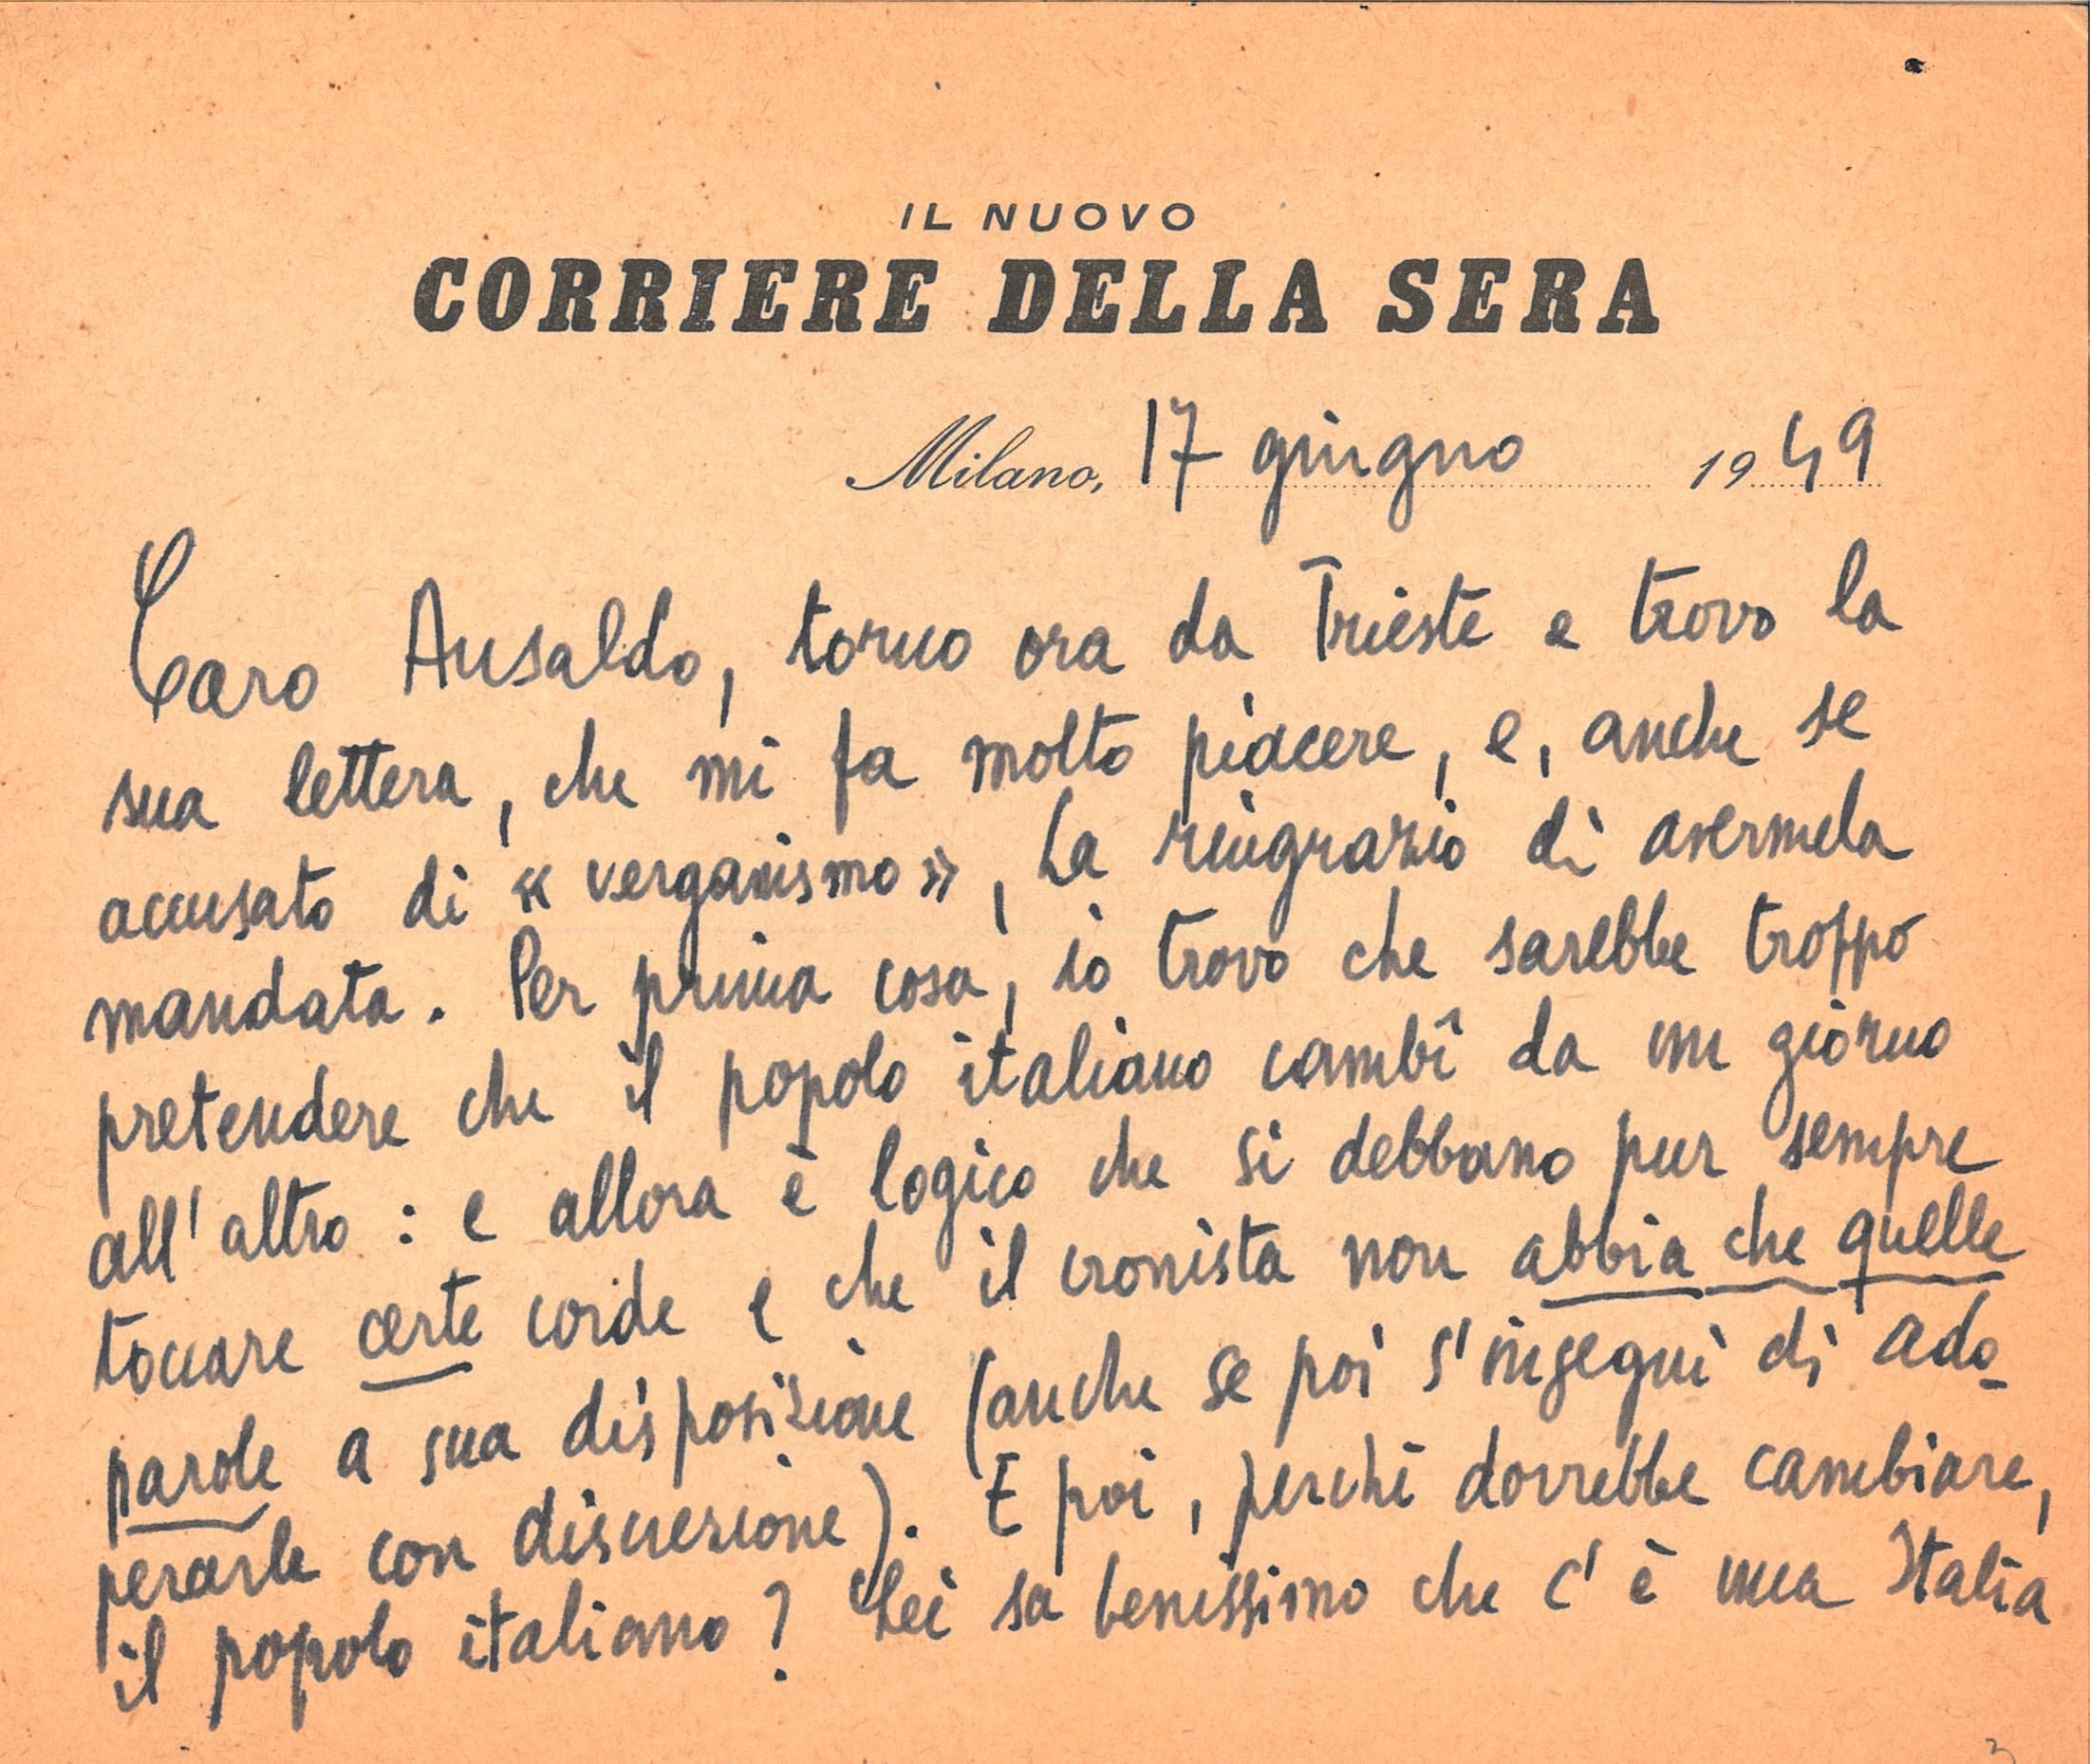 IL NUOVO
CORRIERE DELLA SERA
Milano, 17 giugno 1949
Caro Ansaldo, torno ora da Trieste e trovo la
sua lettera, che mi fa molto piacere, e, anche se
accusato di « verganismo », La ringrazio di avermela
mandata. Per prima cosa, io trovo che sarebbe troppo
pretendere che il popolo italiano cambî da un giorno
all'altro : e allora è logico che si debbano pur sempre
toccare certe corde e che il cronista non abbia che quelle
parole a sua disposizione (anche se poi s'ingegni di ado-
perarle con discrezione). E poi, perché dovrebbe cambiare,
il popolo italiano ? Lei sa benissimo che c'è una Italia